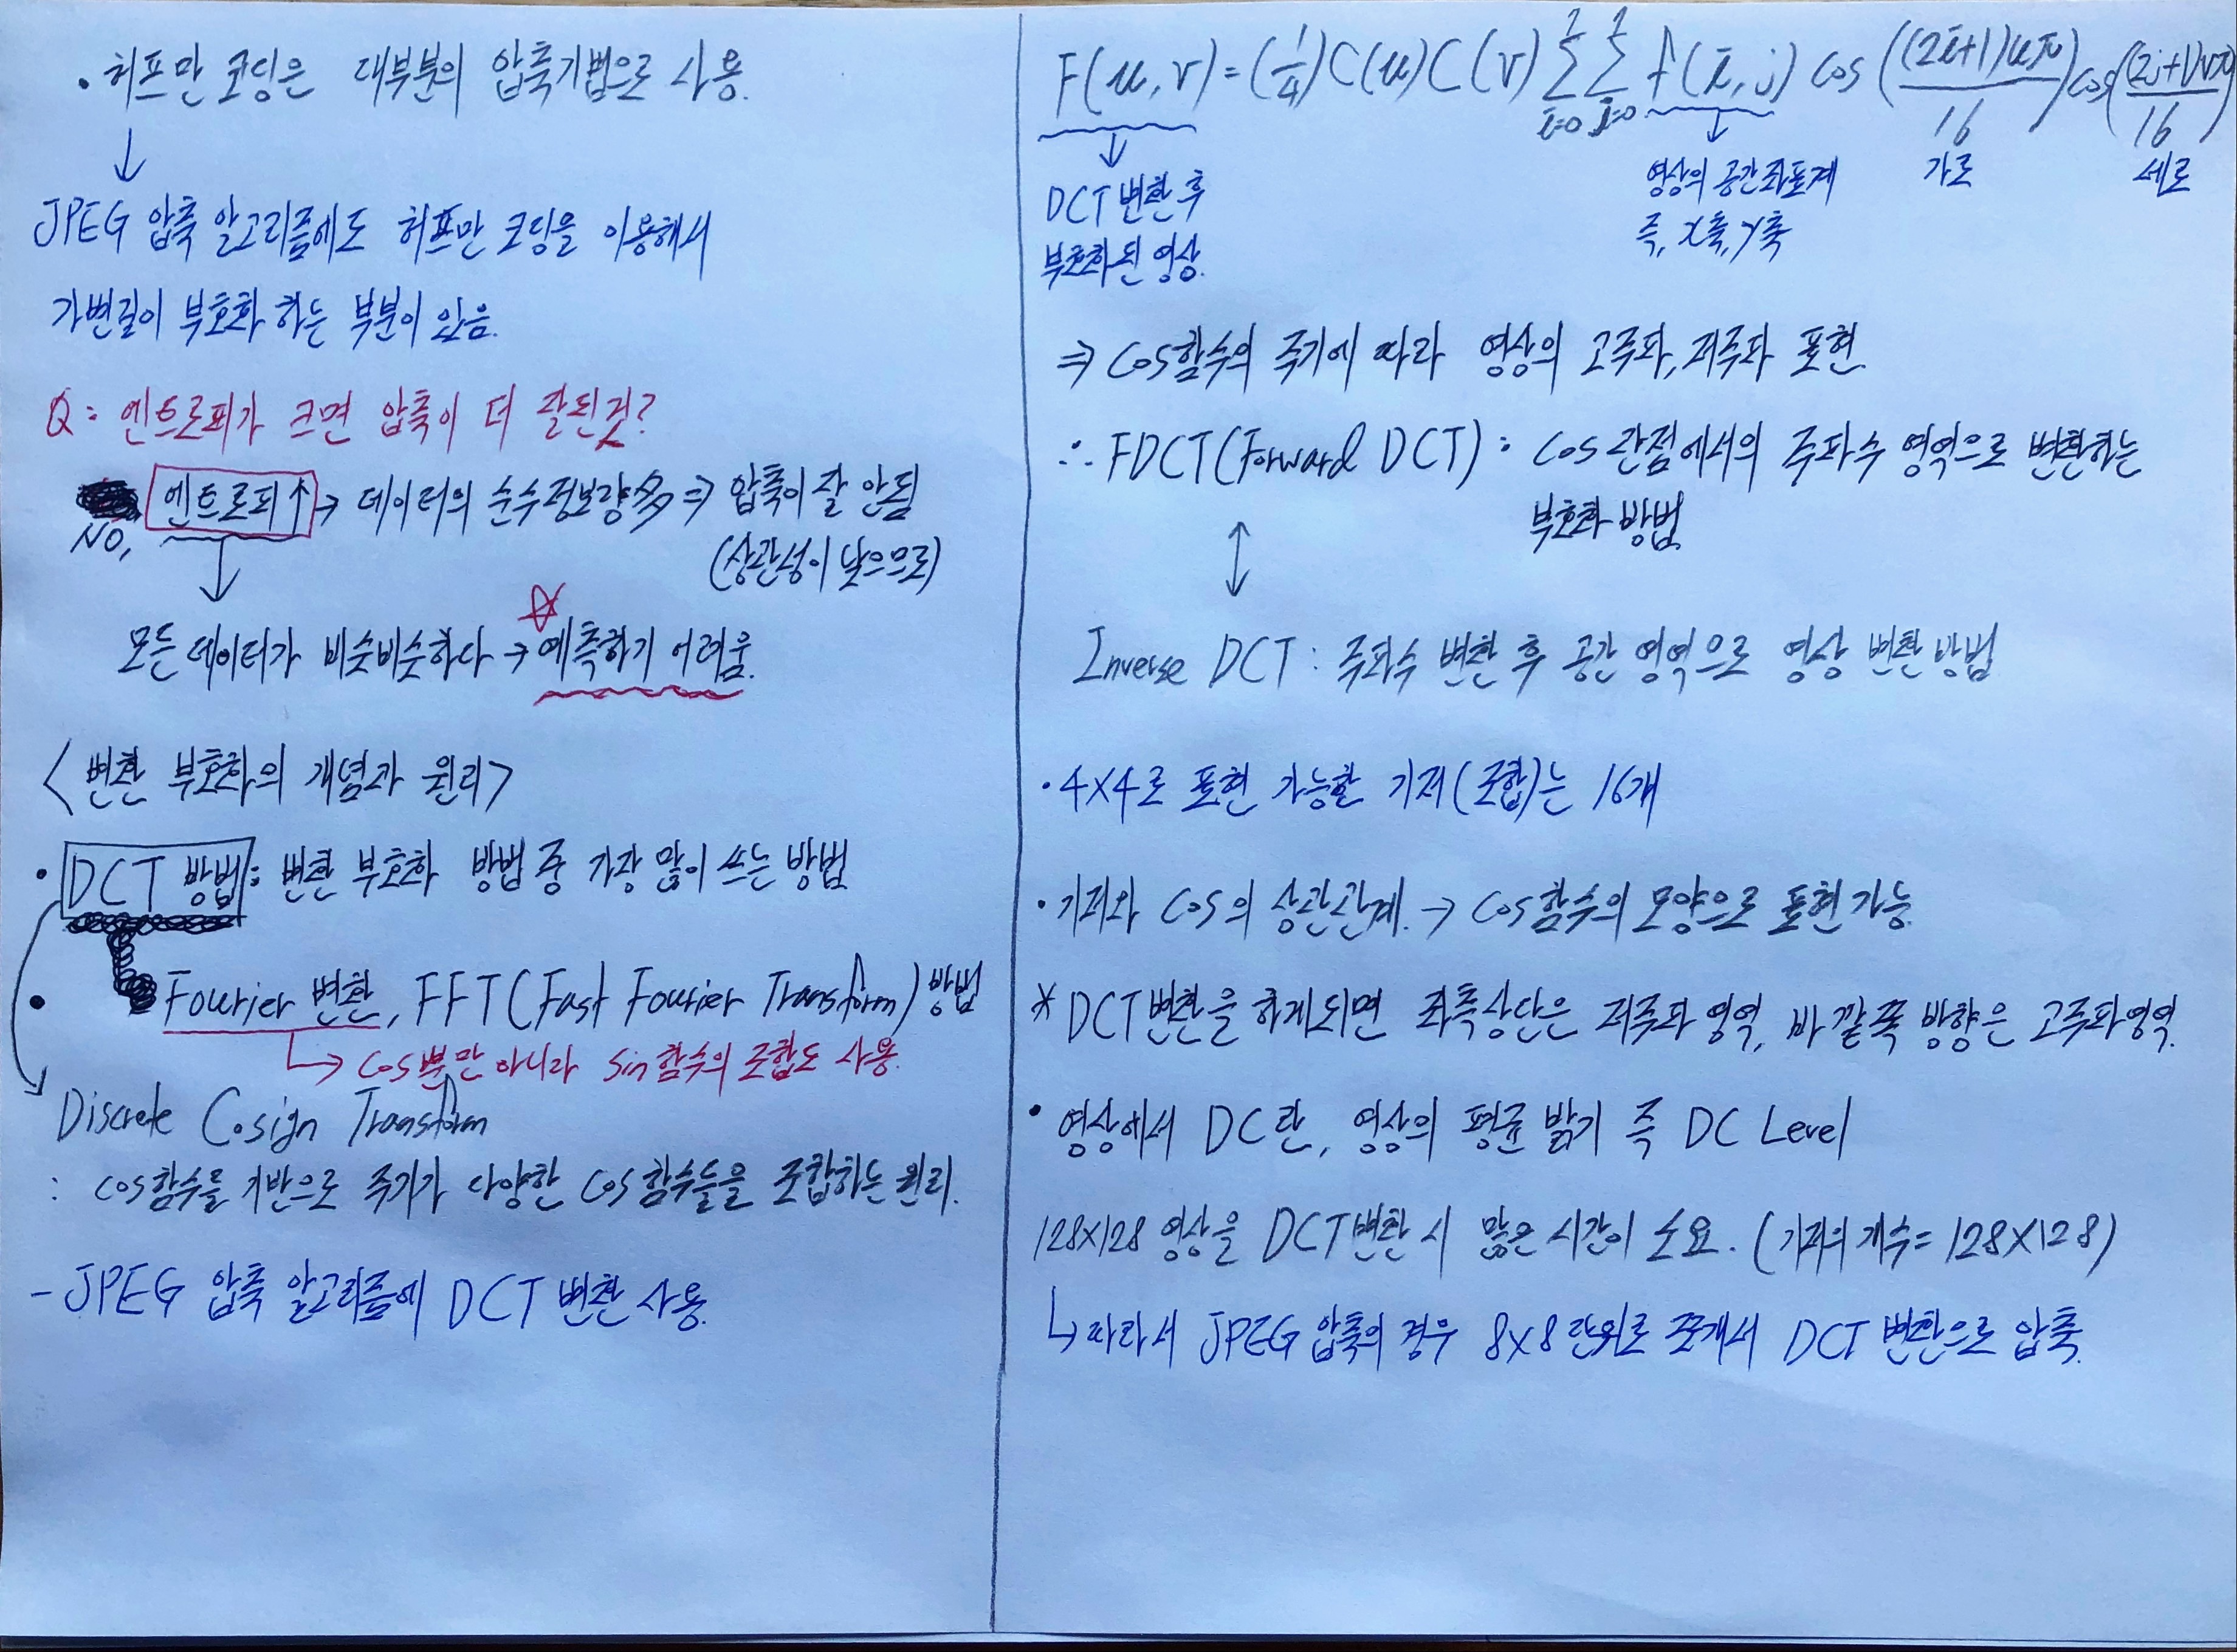 · 허프만 코딩은 대부분의 압축기법으로 사용.
↓
JPEG 압축 알고리즘에도 허프만 코딩을 이용해서
가변길이 부호화 하는 부분이 있음.
Q: 엔트로피가 크면 압축이 더 잘된것?
NO, 엔트로피↑ → 데이터의 순수정보량多 ⇒ 압축이 잘 안됨
(상관성이 낮으므로)
↓
모든 데이터가 비슷비슷하다 → ☆예측하기 어려움.
<변환 부호화의 개념과 원리>
· DCT 방법: 변환 부호화 방법 중 가장 많이 쓰는 방법
· Fourier 변환, FFT(Fast Fourier Transform) 방법
↳ Cos뿐만 아니라 Sin함수의 조합도 사용.
Discrete Cosign Transform
: cos함수를 기반으로 주기가 다양한 Cos함수들을 조합하는 원리.
- JPEG 압축 알고리즘에 DCT 변환 사용.
F(u,v)=(1/4)C(u)C(v) Σ(i=0,7) Σ(j=0,7) f(i,j) cos((2i+1)uπ/16) cos((2j+1)vπ/16)
↓ ↓ 가로 세로
DCT 변환 후
부호화된 영상.
영상의 공간좌표계
즉, x축, y축
⇒ Cos함수의 주기에 따라 영상의 고주파, 저주파 표현.
∴ FDCT(Forward DCT): Cos 관점에서의 주파수 영역으로 변환하는
부호화 방법.
↕
Inverse DCT : 주파수 변환 후 공간 영역으로 영상 변환 방법
· 4×4로 표현 가능한 기저(조합)는 16개
· 기저와 Cos의 상관관계. → Cos함수의 모양으로 표현 가능.
* DCT변환을 하게되면 좌측상단은 저주파 영역, 바깥쪽 방향은 고주파영역.
· 영상에서 DC란, 영상의 평균 밝기 즉 DC Level
128×128 영상을 DCT변환 시 많은 시간이 소요. (기저의 개수= 128×128)
↳ 따라서 JPEG 압축의 경우 8×8 단위로 쪼개서 DCT 변환으로 압축.